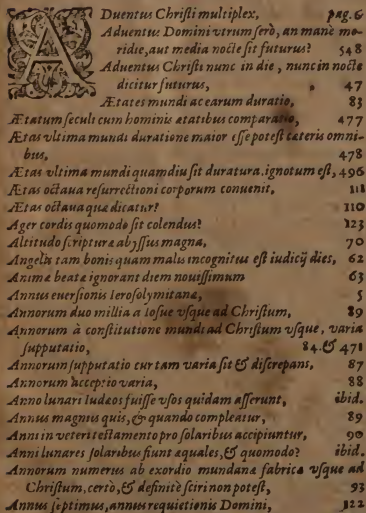 ADuentus Christi multiplex, pag. 6
Aduentus Domini vtrum serò, an manè me-
ridie, aut media nocte sit futurus? 548
Aduentus Christi nunc in die, nunc in nocte
dicitur futurus, 47
Ætates mundi ac earum duratio, 83
Ætatum seculi cum hominis ætatibus comparatio, 477
Ætas vltima mundi duratione maior esse potest cæteris omni-
bus, 478
Ætas vltima mundi quamdiu sit duratura, ignotum est, 496
Ætas octaua resurrectioni corporum conuenit, 111
Ætas octaua quæ dicatur? 110
Ager cordis quomodo sit colendus? 123
Altitudo scripturæ abyssus magna, 70
Angelis tam bonis quam malis incognitus est iudicij dies, 62
Animæ beatæ ignorant diem nouissimum 63
Annus euersionis Ierosolymitanæ, 5
Annorum duo millia a Iosue vsque ad Christum, 89
Annorum à constitutione mundi ad Christum vsque, varia
supputatio, 84. & 471
Annorum supputatio cur tam varia sit & discrepans, 87
Annorum acceptio varia, 88
Anno lunari Iudæos fuisse vsos quidam asserunt, ibid.
Annus magnus quis, & quando compleatur, 89
Anni in veteri testamento pro solaribus accipiuntur, 90
Anni lunares solaribus fiunt æquales, & quomodo? ibid.
Annorum numerus ab exordio mundanæ fabricæ vsque ad
Christum, certò, & definitè sciri non potest, 93
Annus septimus, annus requietionis Domini, 122